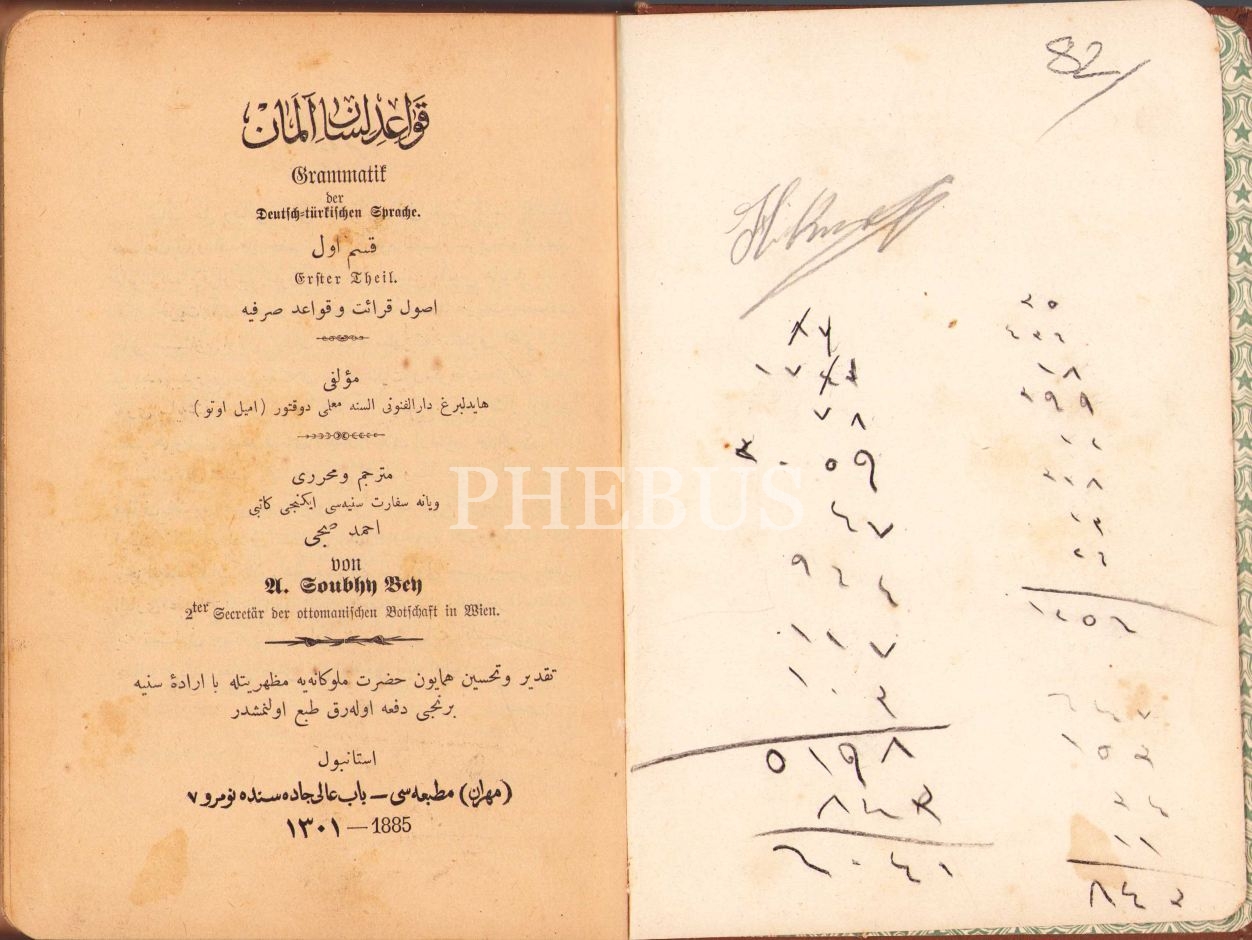 قواعد لسان آلمان
Grammatik
der
Deutsch-türkischen Sprache.
قسم اول
Erster Theil.
اصول قرائت و قواعد صرفیه
مؤلفی
هایدلبرغ دارالفنونی السنه معلمی دوقتور (امیل اوتو)
مترجم و محرری
ویانه سفارت سنیه‌سی ایکنجی کاتبی
احمد صبحی
von
A. Soubhy Bey
2ter Secretär der ottomanischen Botschaft in Wien.
تقدیر و تحسین همایون حضرت ملوکانه‌یه مظهریتله با ارادۀ سنیه
برنجی دفعه اوله‌رق طبع اولنمشدر
استانبول
(مهران) مطبعه‌سی – باب عالی جاده‌سنده نومرو ۷
۱۳۰۱ — 1885
PHEBUS
82
Hikmet
٧٨
٩٦٤
١١٧
١٠٣
٥١٩٨
٨٤٣
٦٠٤١
٢٥
١٨
٣٩٩
١٣
٢٦
١٥٣
٣٤
١١
٨٤٣